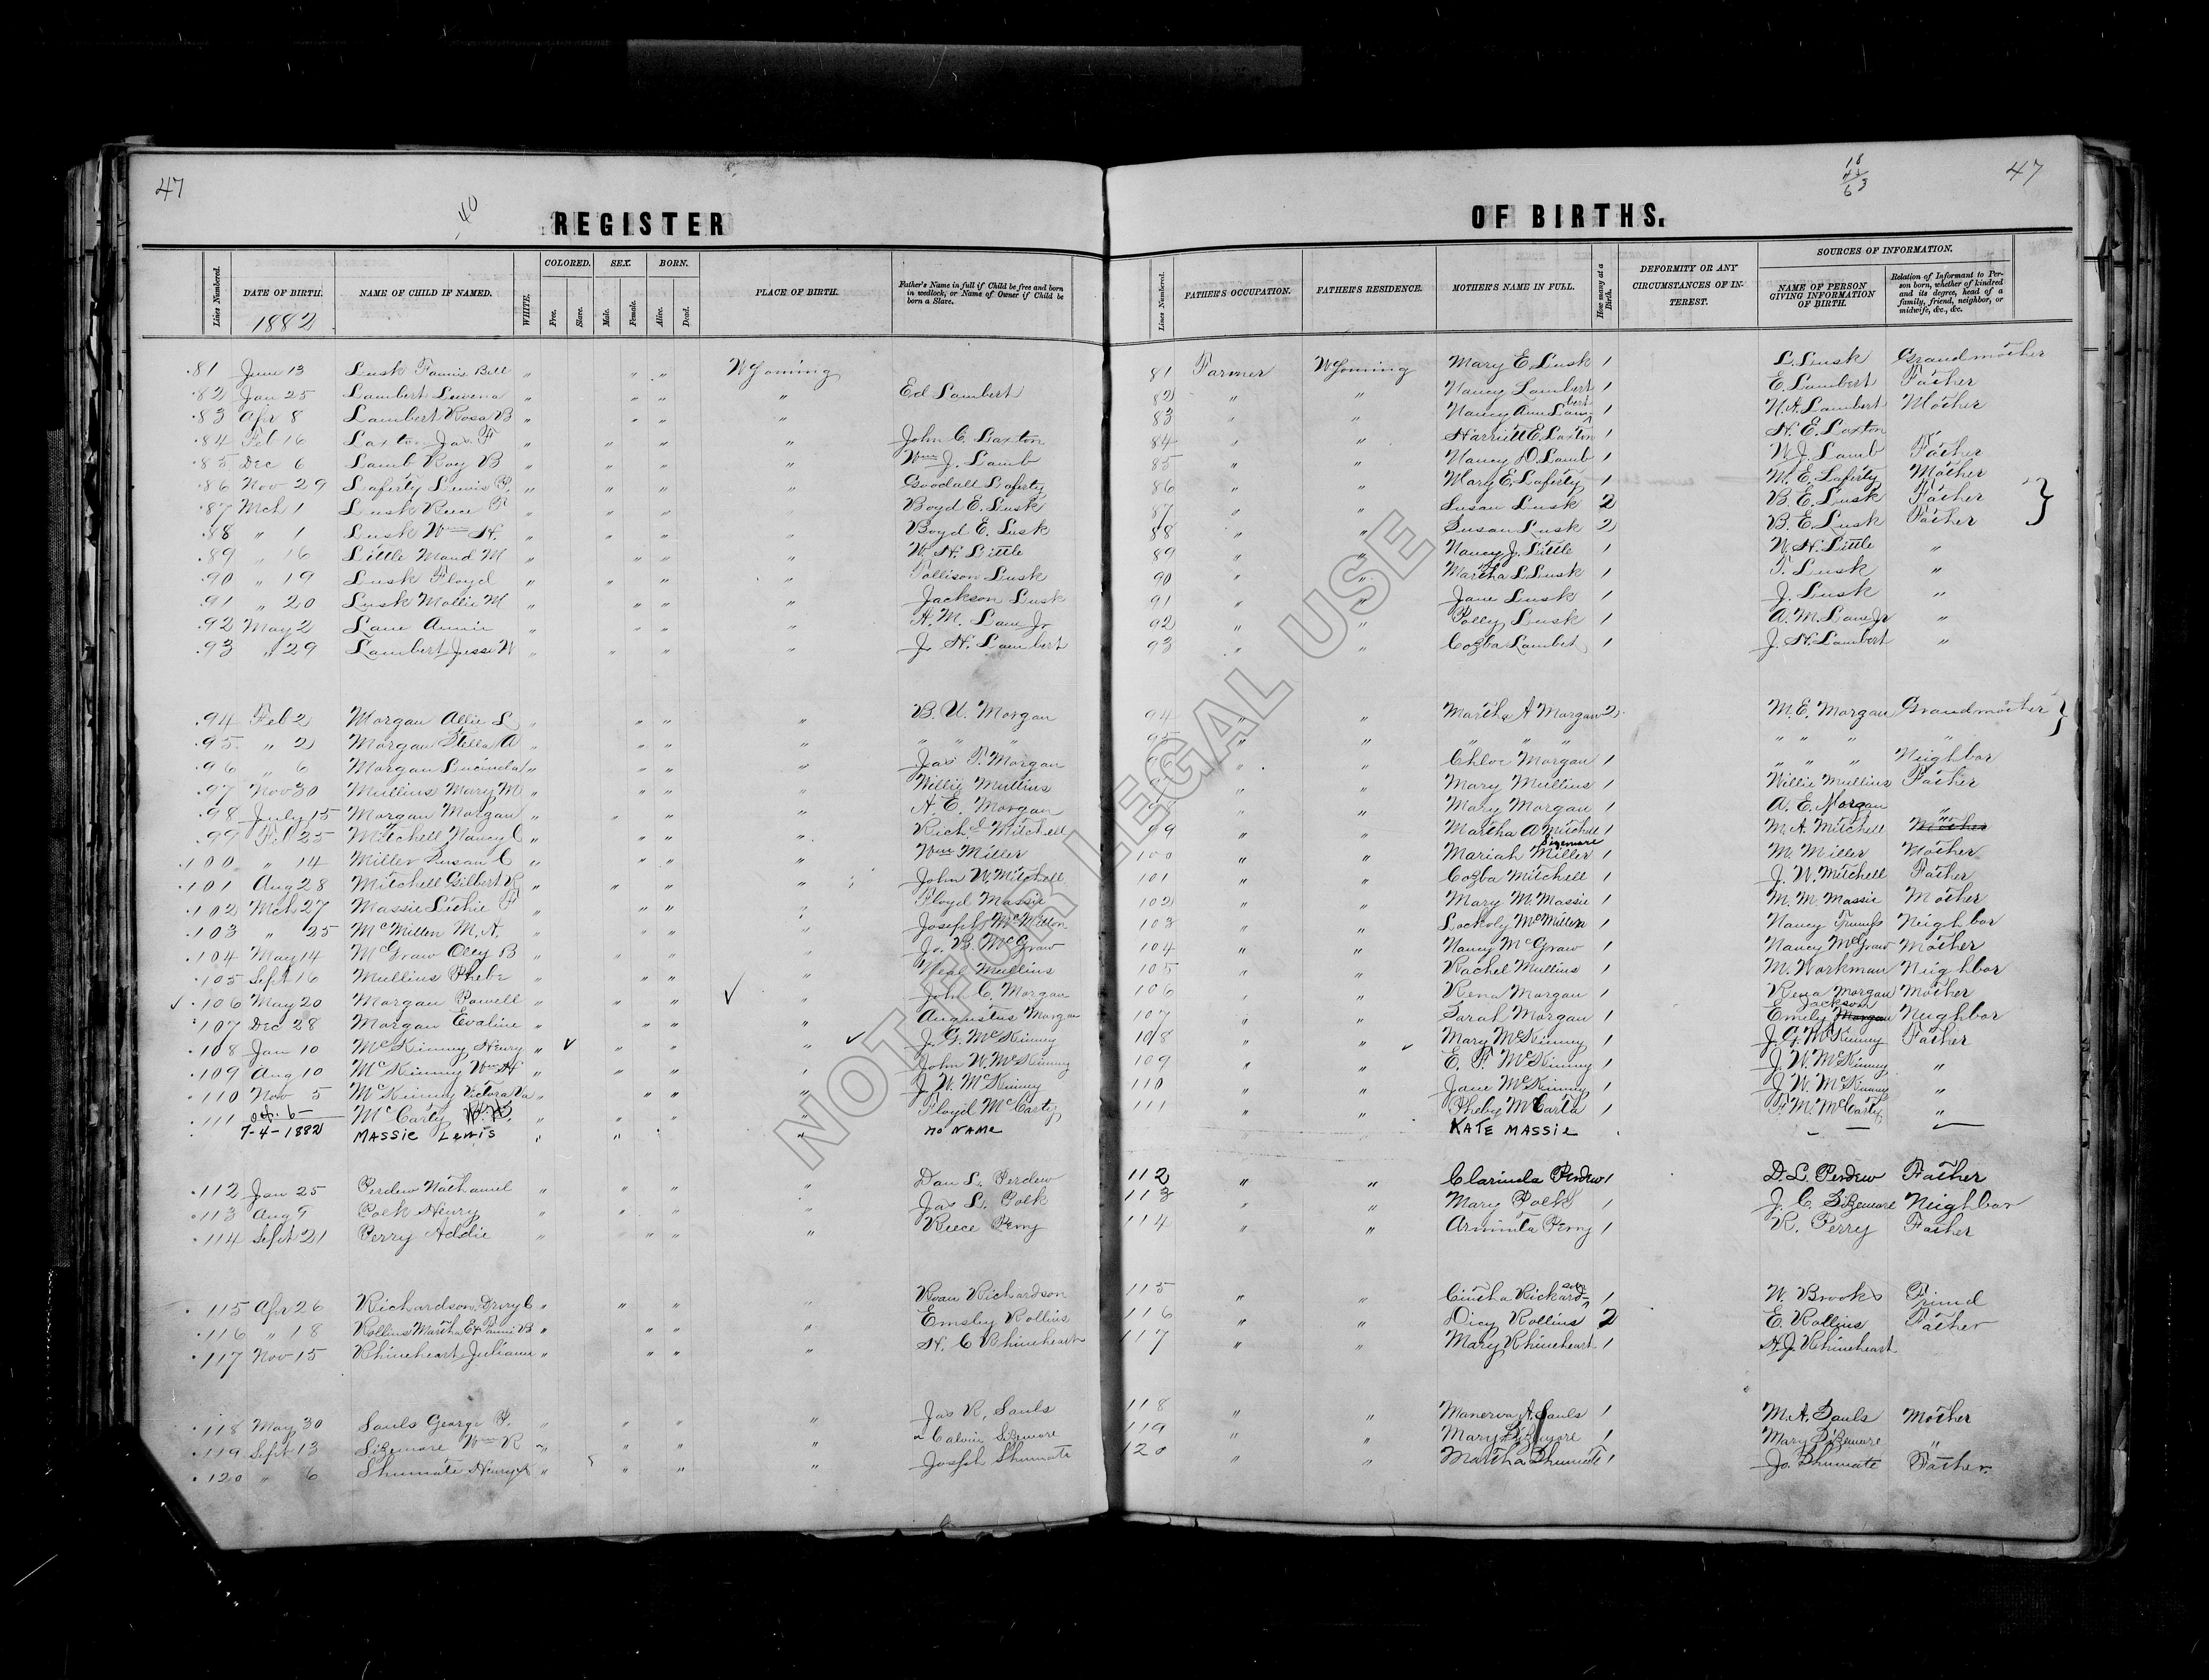 47
40
REGISTER
Lines Numbered.
DATE OF BIRTH.
1882
NAME OF CHILD IF NAMED.
WHITE.
COLORED.
Free.
Slave.
SEX.
Male.
Female.
BORN.
Alive.
Dead.
PLACE OF BIRTH.
Father's Name in full if Child be free and born in wedlock, or Name of Owner if Child be born a Slave.
81 June 13 Lusk Fannie Bell " " " Wyoming
82 Jan 25 Lambert Luvena " " " " Ed Lambert
83 Apr 8 Lambert Rosa B " " " "
84 Feb 16 Laxton Jas. F " " " " John C. Laxton
85 Dec 6 Lamb Roy B " " " " Wm J. Lamb
86 Nov 29 Laferty Lewis P. " " " " Goodall Laferty
87 Mch 1 Lusk Reece " " " " Boyd E. Lusk
88 " 1 Lusk Wm H. " " " " Boyd E. Lusk
89 " 16 Little Maud M " " " " W. H. Little
90 " 19 Lusk Floyd " " " " Tollison Lusk
91 " 20 Lusk Mollie M " " " " Jackson Lusk
92 May 2 Lane Annie " " " " A. M. Lane Jr
93 " 29 Lambert Jesse W " " " " J. H. Lambert
94 Feb 2 Morgan Allie L " " " " B. U. Morgan
95 " 2 Morgan Stella A " " " " " " "
96 " 6 Morgan Lucinda " " " " Jas T. Morgan
97 Nov 30 Mullins Mary M " " " " Willie Mullins
98 July 15 Morgan Morgan " " " " A. E. Morgan
99 Feb 25 Mitchell Nancy C " " " " Richd Mitchell
100 " 14 Miller Susan C " " " " Wm Miller
101 Aug 28 Mitchell Gilbert R " " " " John W. Mitchell
102 Mch 27 Massie F " " " " Floyd Massie
103 " 25 McMillen M. A. " " " " Joseph McMillon
104 May 14 McGraw Oley B " " " " Jo. B. McGraw
105 Sept 16 Mullins Phebe " " " " Neal Mullins
106 May 20 Morgan Powell " " " " John C. Morgan
107 Dec 28 Morgan Evaline " " " " Augustus Morgan
108 Jan 10 McKinney Henry " " " " J. G. McKinney
109 Aug 10 McKinney Wm H " " " " John W. McKinney
110 Nov 5 McKinney Victora Va " " " " J. W. McKinney
111 Oct. 6 McCarty " " " " Floyd McCarty
7-4-1882 MASSIE Lewis " " " NO NAME
112 Jan 25 Perdew Nathaniel " " " " Dan L. Perdew
113 Aug 9 Polk Henry " " " " Jas L. Polk
114 Sept 21 Perry Addie " " " " Reece Perry
115 Apr 26 Richardson Drury C " " " Roan Richardson
116 " 18 Rollins Martha E & Fanni B " " " " Emsby Rollins
117 Nov 15 Rhineheart Juliann " " " " H. C Rhineheart
118 May 30 Sauls George P. " " " " Jas R. Sauls
119 Sept 13 Sizemore Wm R " " " " Calvin Sizemore
120 " 6 Shumate Henry " " " " Joseph Shumate
47
18
OF BIRTHS.
Lines Numbered.
FATHER'S OCCUPATION.
FATHER'S RESIDENCE.
MOTHER'S NAME IN FULL.
How many at a Birth.
DEFORMITY OR ANY CIRCUMSTANCES OF INTEREST.
SOURCES OF INFORMATION.
NAME OF PERSON GIVING INFORMATION OF BIRTH.
Relation of Informant to Person born, whether of kindred and its degree, head of a family, friend, neighbor, or midwife, &c., &c.
81 Farmer Wyoming Mary E. Lusk 1 L. Lusk Grandmother
82 " " Nancy Lambert 1 E. Lambert Father
83 " " Nancy Ann Lambert 1 N. A. Lambert Mother
84 " " Harriett E. Laxton 1 H. E. Laxton "
85 " " Nancy D. Lamb 1 W. J. Lamb Father
86 " " Mary E. Laferty 1 M. E. Laferty Mother
87 " " Susan Lusk 2 B. E. Lusk Father
88 " " Susan Lusk 2 B. E. Lusk Father
89 " " Nancy J. Little 1 W. H. Little "
90 " " Martha L Lusk 1 T. Lusk "
91 " " Jane Lusk 1 J. Lusk "
92 " " Polly Lusk 1 A. M. Lane Jr "
93 " " Cozba Lambet 1 J. H. Lambert "
94 " " Martha A Morgan 2 M. E. Morgan Grandmother
95 " " " " " " " " "
" Chloe Morgan 1 " " " Neighbor
" Mary Mullins 1 Willie Mullins Father
" " Mary Morgan 1 A. E. Morgan "
99 " " Martha A Mitchell 1 M. A. Mitchell Mother
100 " " Mariah Sizemore Miller 1 M. Miller Mother
101 " " Cozba Mitchell 1 J. W. Mitchell Father
102 " " Mary M. Massie 1 M. M. Massie Mother
103 " " McMillen 1 Nancy Neighbor
104 " " Nancy McGraw 1 Nancy McGraw Mother
105 " " Rachel Mullins 1 M. Workman Neighbor
106 " " Rena Morgan 1 Rena Morgan Mother
107 " " Sarah Morgan 1 Emily Jackson Morgan Neighbor
108 " " Mary McKinney 1 J. G. McKinney Father
109 " " E. F. McKinney 1 J. W. McKinney "
110 " " Jane McKinney 1 J. W. McKinney "
111 " " Pheby McCarta 1 F. M. McCarty "
KATE MASSIE
112 " " Clarinda Perdew 1 D. L. Perdew Father
113 " " Mary Polk 1 J. C. Sizemore Neighbor
114 " " Arminta Perry 1 R. Perry Father
115 " " Cintha Rickardson 1 W Brooks Friend
116 " " Dicy Rollins 2 E. Rollins Father
117 " " Mary Rhineheart 1 H. J. Rhineheart
118 " " Manerva A. Sauls 1 M. A. Sauls Mother
119 " " Mary Sizemore 1 Mary Sizemore "
120 " " Martha Shumate 1 Jo. Shumate Father.
NOT FOR LEGAL USE